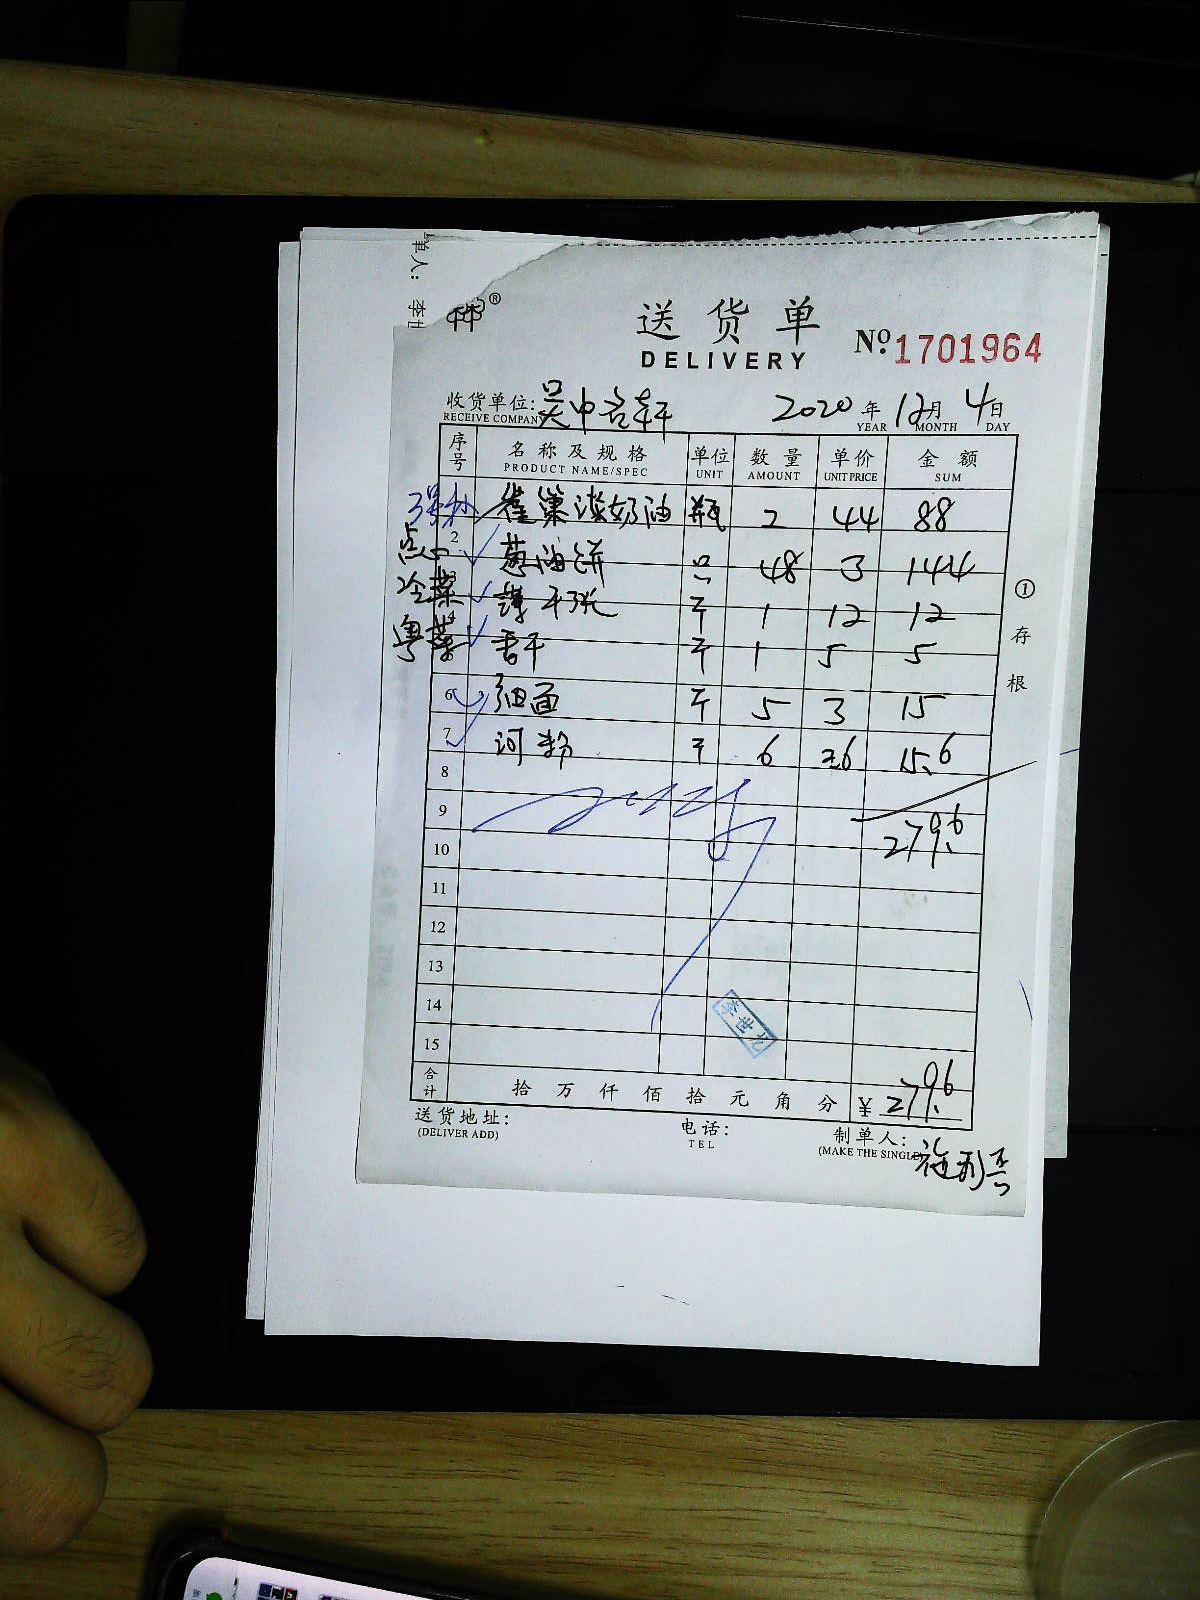 单人：
送货单
DELIVERY
®
Nº.1701964
收货单位：吴中名轩 2020年12月4日
RECEIVE COMPANY YEAR MONTH DAY
序号 名称及规格 单位 数量 单价 金额
PRODUCT NAME/SPEC UNIT AMOUNT UNIT PRICE SUM
雀巢淡奶油 瓶 2 44 88
点心 2 葱油饼 只 48 3 144
冷菜 薄千张 斤 1 12 12
粤菜 香干 斤 1 5 5
6 细面 斤 5 3 15
7 河粉 斤 6 2.6 15.6
8
9 279.6
10
11
12
13
14
李世龙
15
合计 拾万仟佰拾元角分 ¥279.6
送货地址： 电话： 制单人：
(DELIVER ADD) TEL (MAKE THE SINGLE)
①
存
根